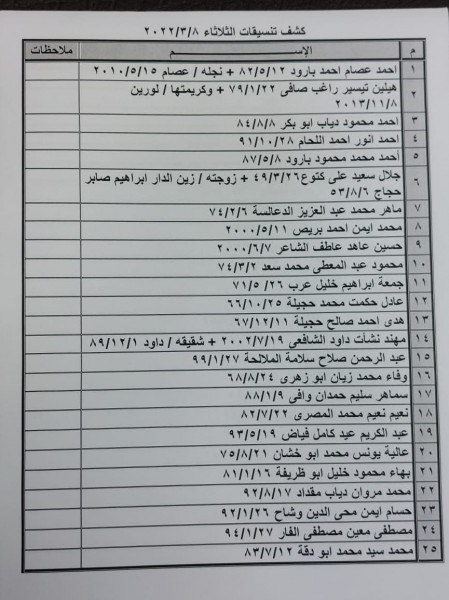 كشف تنسيقات الثلاثاء ٢٠٢٢/٣/٨
م الإســــم ملاحظات
١ احمد عصام احمد بارود ٨٢/٥/١٢ + نجله / عصام ٢٠١٠/٥/١٥
٢ هيلين تيسير راغب صافى ٧٩/١/٢٢ + وكريمتها / لورين
٢٠١٣/١١/٨
٣ احمد محمود دياب ابو بكر ٨٤/٨/٨
٤ احمد انور احمد اللحام ٩١/١٠/٢٨
٥ احمد محمد محمود بارود ٨٧/٥/٨
٦ جلال سعيد على كتوع ٤٩/٣/٢٦ + زوجته / زين الدار ابراهيم صابر
حجاج ٥٣/٨/٦
٧ ماهر محمد عبد العزيز الدعالسة ٧٤/٢/٦
٨ محمد ايمن احمد بريص ٢٠٠٠/٥/١١
٩ حسين عاهد عاطف الشاعر ٢٠٠٠/٦/٧
١٠ محمود عبد المعطى محمد سعد ٧٤/٣/٢
١١ جمعة ابراهيم خليل عرب ٧١/٥/٢٦
١٢ عادل حكمت محمد حجيلة ٦٦/١٠/٢٥
١٣ هدى احمد صالح حجيلة ٦٧/١٢/١١
١٤ مهند نشأت داود الشافعى ٢٠٠٢/٧/١٩ + شقيقه / داود ٨٩/١٢/١
١٥ عبد الرحمن صلاح سلامة الملالحة ٩٩/١/٢٧
١٦ وفاء محمد زيان ابو زهرى ٦٨/٨/٢٤
١٧ سماهر سليم حمدان وافى ٨٨/١/٩
١٨ نعيم نعيم محمد المصرى ٨٢/٧/٢٢
١٩ عبد الكريم عيد كامل فياض ٩٣/٥/١٩
٢٠ عالية يونس محمد ابو خشان ٧٥/٨/٢١
٢١ بهاء محمود خليل ابو ظريفة ٨١/١/١٦
٢٢ محمد مروان دياب مقداد ٩٢/٨/١٧
٢٣ حسام ايمن محى الدين وشاح ٩٢/١/٢٦
٢٤ مصطفى معين مصطفى الفار ٩٤/١/٢٧
٢٥ محمد سيد محمد ابو دقة ٨٣/٧/١٢